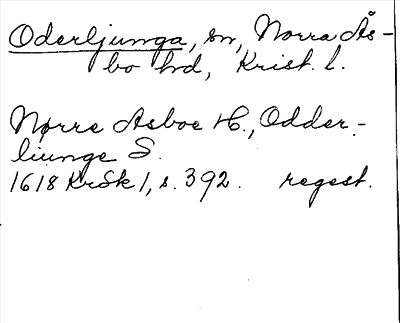 Oderljunga, sn, Norra Ås-
bo hd, Krist. l.
Nørre Asboe H., Odder-
liunge S.
1618 KrSk 1, s. 392. regest.